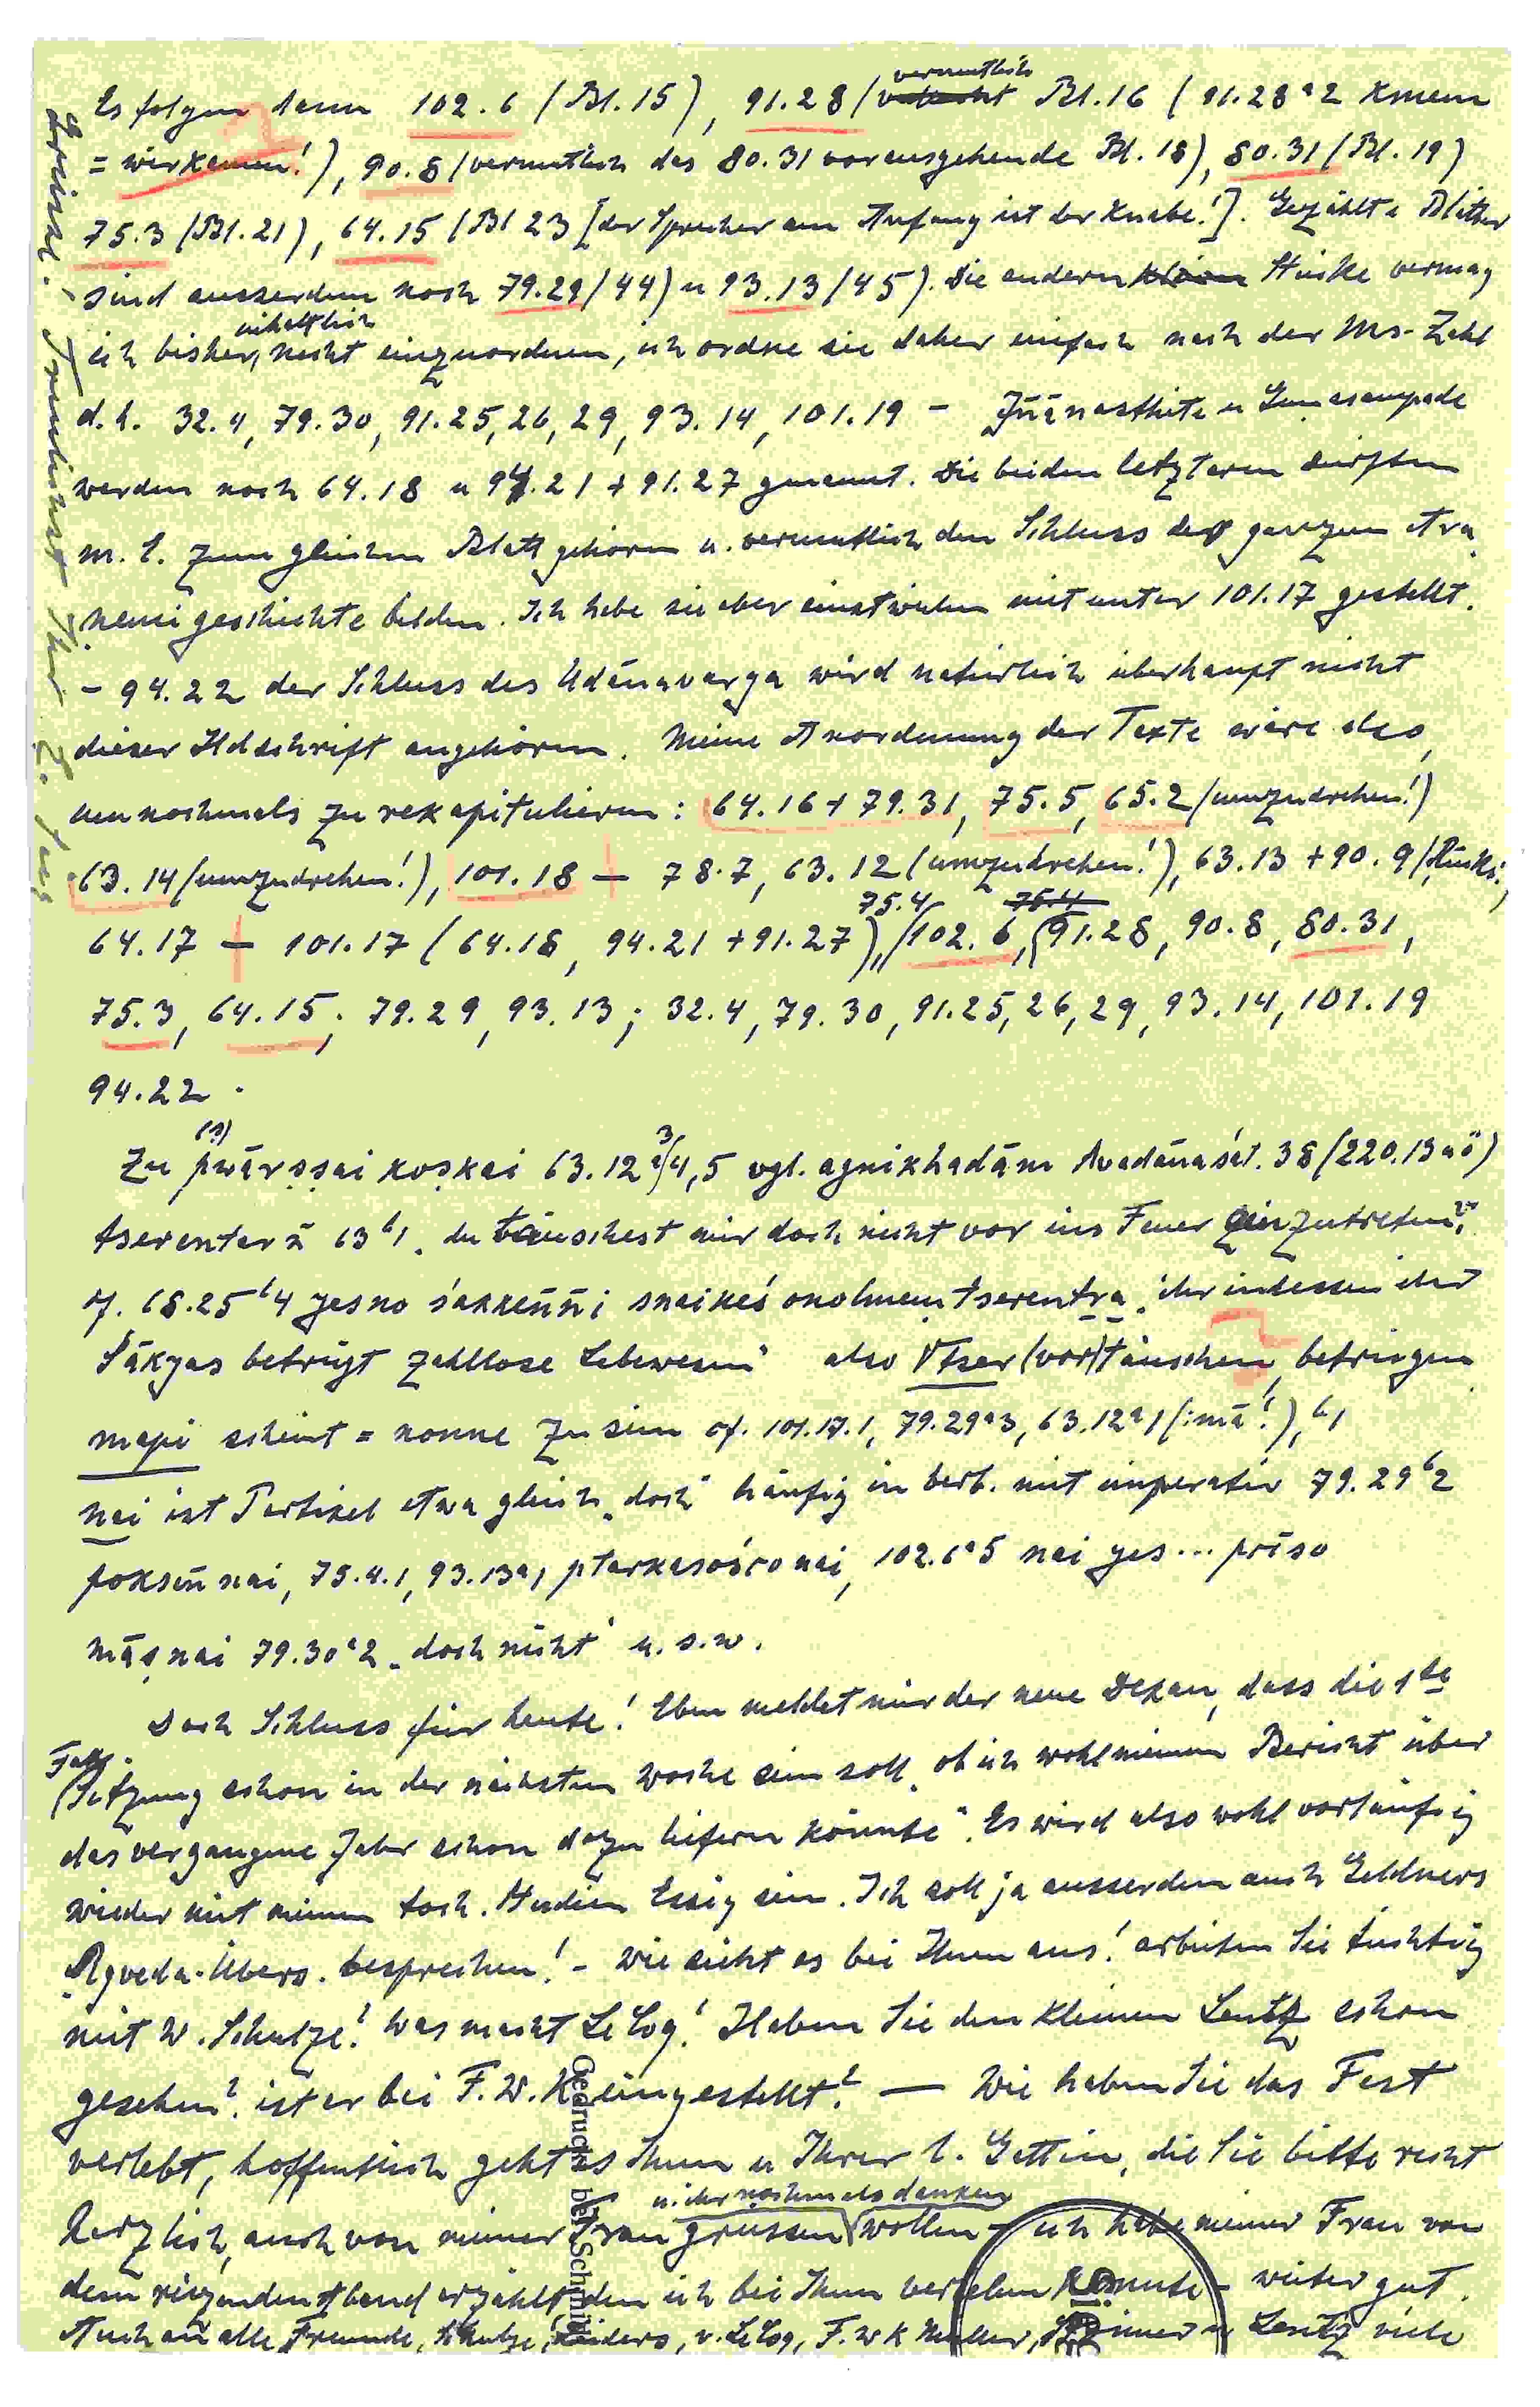 Es folgen dann 102.6 (Bl. 15), 91.28 (vermutlich Bl. 16 (91.28ᵃ2 kmem
= wir kamen!), 90.8 (vermutlich das 80.31 vorausgehende Bl. 18), 80.31 (Bl. 19)
75.3 (Bl. 21), 64.15 (Bl 23 [der Sprecher am Anfang ist der Knabe!]. Gezählte Blätter
sind ausserdem noch 79.29 (44) u 93.13 (45). Die andern Stücke vermag
ich bisher inhaltlich nicht einzuordnen, ich ordne sie daher einfach nach der Ms-Zahl
d. h. 32.4, 79.30, 91.25, 26, 29, 93.14, 101.19 – Jñānasthite u Guṇasampade
werden noch 64.18 u 94.21 + 91.27 genannt. Die beiden letzteren dürften
m. E. zum gleichen Blatt gehören u. vermutlich den Schluss der ganzen Ara
ṇemigeschichte bilden. Ich habe sie aber einstweilen mit unter 101.17 gestellt.
– 94.22 der Schluss des Udānavarga wird natürlich überhaupt nicht
dieser Hdschrift angehören. Meine Anordnung der Texte wäre also,
um nochmals zu rekapitulieren: 64.16 + 79.31, 75.5, 65.2 (umzudrehen!)
63.14 (umzudrehen!), 101.18 – 78.7, 63.12 (umzudrehen!), 63.13 + 90.9 (Rücks.,
64.17 – 101.17 (64.18, 94.21 + 91.27), 75.4, 102.6, 91.28, 90.8, 80.31,
75.3, 64.15; 79.29, 93.13; 32.4, 79.30, 91.25, 26, 29, 93.14, 101.19
94.22.
Zu pwārṣṣai koṣkai 63.12ᵃ3/4,5 vgl. agnikhadām Avadānaśat. 38 (220.13 uö)
tserentar ñ 63ᵇ1 „du täuschest mir doch nicht vor ins Feuer einzutreten?“
cf. 68.25ᵇ4 yes no śakkeññi snaikeś onolmeṃ tserentra „ihr indessen ihr
Śākyas betrügt zahllose Lebewesen“ also √tser (vor)täuschen, betrügen
mapi scheint = nonne zu sein cf. 101.17.1, 79.29ᵃ3, 63.12ᵃ1 (:mā!), ᵇ1
nai ist Partikel etwa gleich „doch“ häufig in verb. mit imperativ 79.29ᵇ2
pokseñ nai, 75.4.1, 93.13ᵃ1 ptarkaso śco nai, 102.6ᵃ5 nai yes... prīso
māṣ nai 79.30ᵃ2 „doch nicht“ u. s. w.
Doch Schluss für heute! Eben meldet mir der neue Dekan, dass die 1te
Fak. Sitzung schon in der nächsten Woche sein soll „ob ich wohl meinen Bericht über
das vergangene Jahr schon dazu liefern könnte“. Es wird also wohl vorläufig
wieder mit meinen toch. Studien Essig sein. Ich soll ja ausserdem auch Geldners
Ṛgveda-Übers. besprechen! – Wie sieht es bei Ihnen aus? arbeiten Sie tüchtig
mit W. Schulze? Was macht LeCoq? Haben Sie den kleinen Lentz schon
gesehen? ist er bei F. W. K eingestellt? — Wie haben Sie das Fest
verlebt, hoffentlich geht es Ihnen u Ihrer l. Gattin, die Sie bitte recht
herzlich, auch von meiner Frau grüssen u. ihr nochmals danken wollen – ich habe meiner Frau von
dem reizenden Abend erzählt, den ich bei Ihnen verleben konnte – weiter gut.
Auch an alle Freunde, Schulze, Lüders, v. LeCoq, F. W K Müller, u Lentz viele
Grüsse. – Treulichst Ihr E. Sieg
Gedruckt bei Schmi